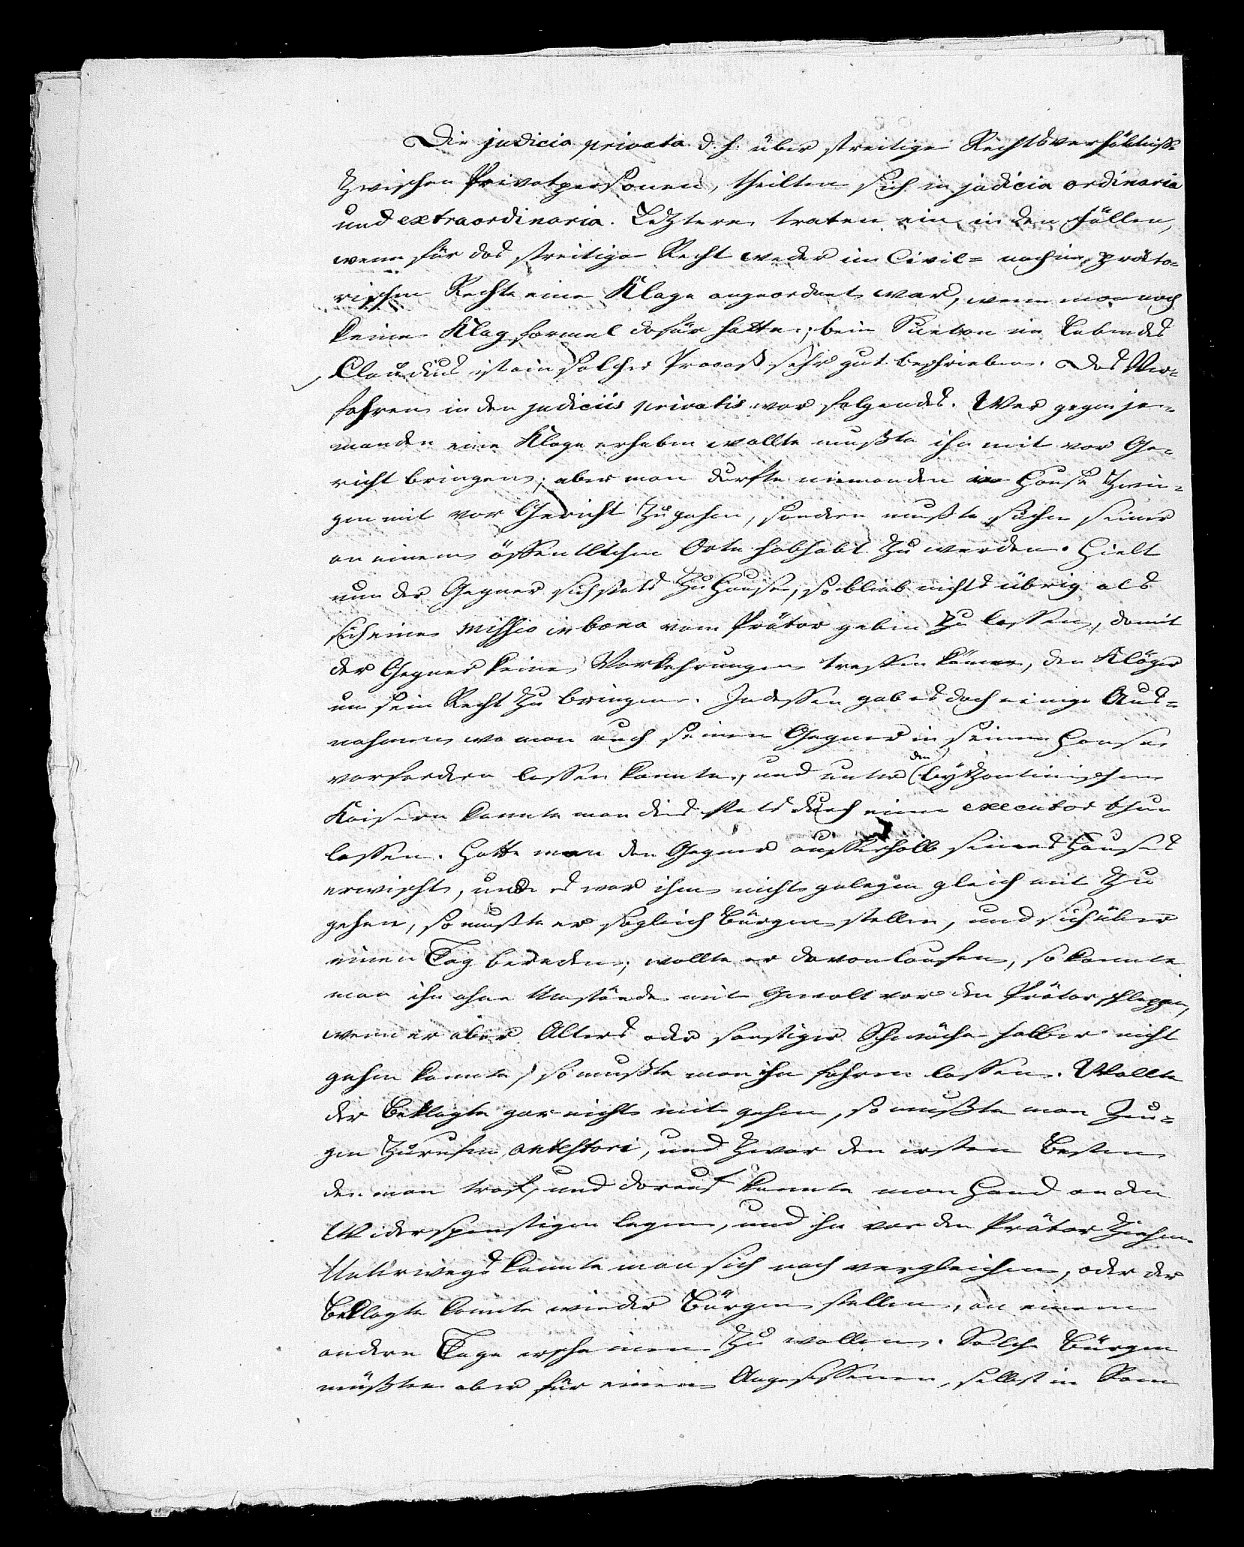 Die judicia privata d. h. über streitige Rechtsverhältniße
zwischen Privatpersonen, theilten sich in judicia ordinaria
und extraordinaria. Leztere traten ein in den Fällen,
wenn für das streitige Recht weder im Civil= noch im präto=
rischen Rechte eine Klage angeordnet war, wenn man noch
keine Klagformel dafür hatte; beim Sueton im Leben des
Claudius ist ein solcher Proceß sehr gut beschrieben. Das Ver=
fahren in den judiciis privatis war folgendes. Wer gegen je=
manden eine Klage erheben wollte mußte ihn mit vor Ge=
richt bringen; aber man durfte niemanden im Hause zwin=
gen mit vor Gericht zu gehen, sondern mußte suchen seiner
an einem öffentlichen Orte habhaft zu werden. Hielt
nun der Gegner sich stets zu Hause, so blieb nichts übrig als
sich eine missio in bona vom Prätor geben zu lassen, damit
der Gegner keine Vorkehrungen treffen könne, den Kläger
um sein Recht zu bringen. Indessen gab es doch einige Aus=
nahmen wo man auch seinen Gegner in seinem Hause
vorfordern lassen konnte, und unter den byzantinischen
Kaisern konnte man dies stets durch einen executor thun
lassen. Hatte man den Gegner ausserhalb seines Hauses
erwischt, und es war ihm nicht gelegen gleich mit zu
gehen, so mußte er sogleich Bürgen stellen, und sich über
einen Tag bereden; wollte er davonlaufen, so konnte
man ihn ohne Umstände mit Gewalt vor den Prätor schleppen,
wenn er aber Alters oder sonstiger Schwäche halber nicht
gehen konnte, so mußte man ihn fahren lassen. Wollte
der Beklagte gar nicht mit gehen, so mußte man Zeu=
gen zurufen, antestari, und zwar den ersten Besten
den man traf, und darauf konnte man Hand an den
Widerspenstigen legen, und ihn vor den Prätor ziehen.
Unterwegs konnte man sich noch vergleichen, oder der
Beklagte konnte wieder Bürgen stellen, an einem
andern Tage erscheinen zu wollen. Solche Bürgen
mußten aber für einen Angesessenen, selbst in Rom